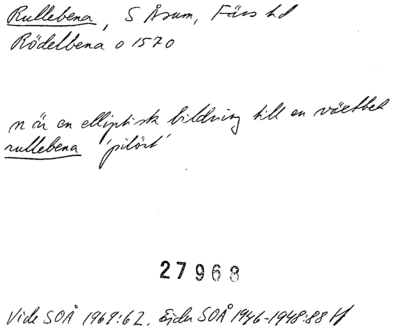 Rullebena, S Åsum, Färs hd
Rödelbena o 1570
n är en elliptisk bildning till en växtbet
rullebena 'pilört'
27968
Vide SOÅ 1969:62. Ejder SOÅ 1946-1948:88